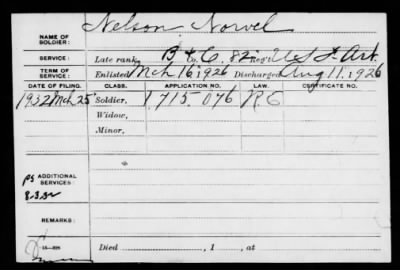 NAME OF SOLDIER: Nelson Norvel
SERVICE: Late rank, B & C Co. 82 Reg't U S F Art.
TERM OF SERVICE: Enlisted Mch 16, 1926 Discharged Aug 11, 1926
DATE OF FILING. CLASS. APPLICATION NO. CERTIFICATE NO.
1932 Mch 25 Soldier, 1715.076
Widow,
Minor,
ADDITIONAL SERVICES:
8-3-32
REMARKS:
Died , 1 , at